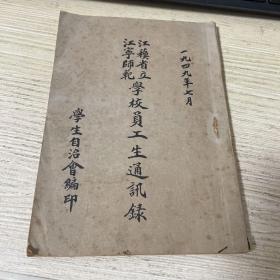 一九四九年七月
江蘇省立
江寧師範
學校員工生通訊録
學生自治會編印